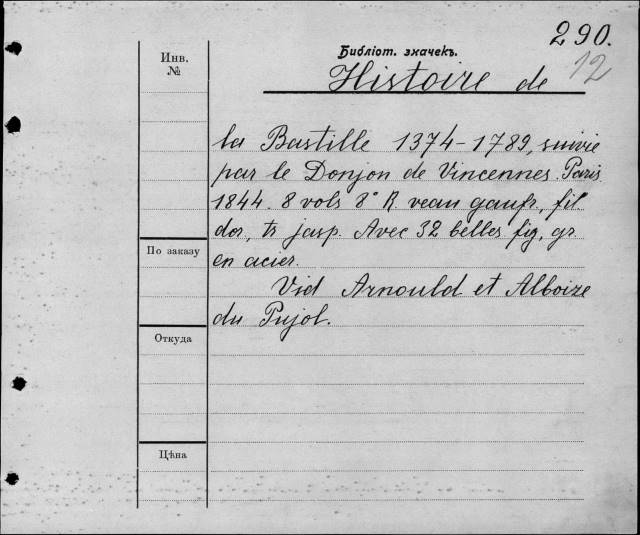 290.
12
Библіот. значекъ.
Инв.
№
Histoire de
la Bastille 1374-1789, suivie
par le Donjon de Vincennes. Paris
1844. 8 vols 8° R. veau gaufr., fil.
dor., tr jasp. Avec 32 belles fig. gr.
en acier.
По заказу
Vid Arnould et Alboize
du Pujol.
Откуда
Цѣна